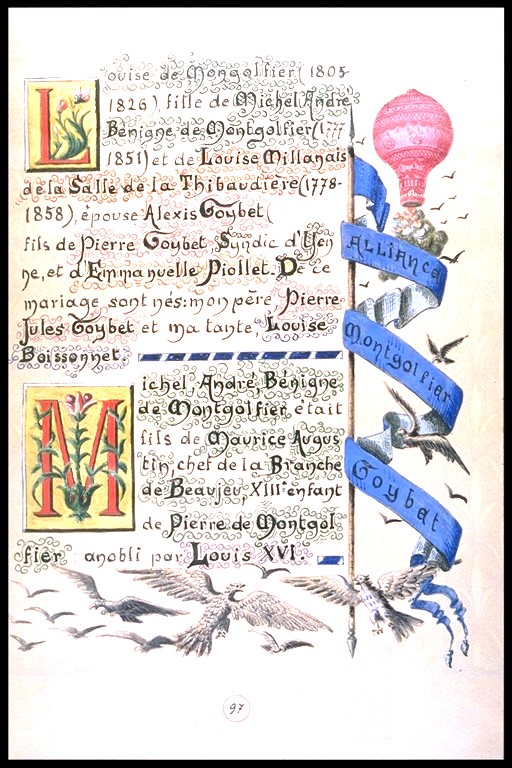 Louise de Mongolfier (1805-
1826), fille de Michel André
Bénigne de Montgolfier (1777
1851) et de Louise Millanais
de la Salle de la Thibaudière (1778-
1858), épouse Alexis Goybet (
fils de Pierre Goybet, Syndic d'Yen
ne, et d'Emmanuelle Piollet. De ce
mariage sont nés: mon père, Pierre
Jules Goybet et ma tante, Louise
Boissonnet.
Michel, André, Bénigne
de Montgolfier, était
fils de Maurice Augus
tin, chef de la Branche
de Beaujeu, XIIIe enfant
de Pierre de Montgol
fier anobli par Louis XVI.
Alliance
Montgolfier
Goybet
97